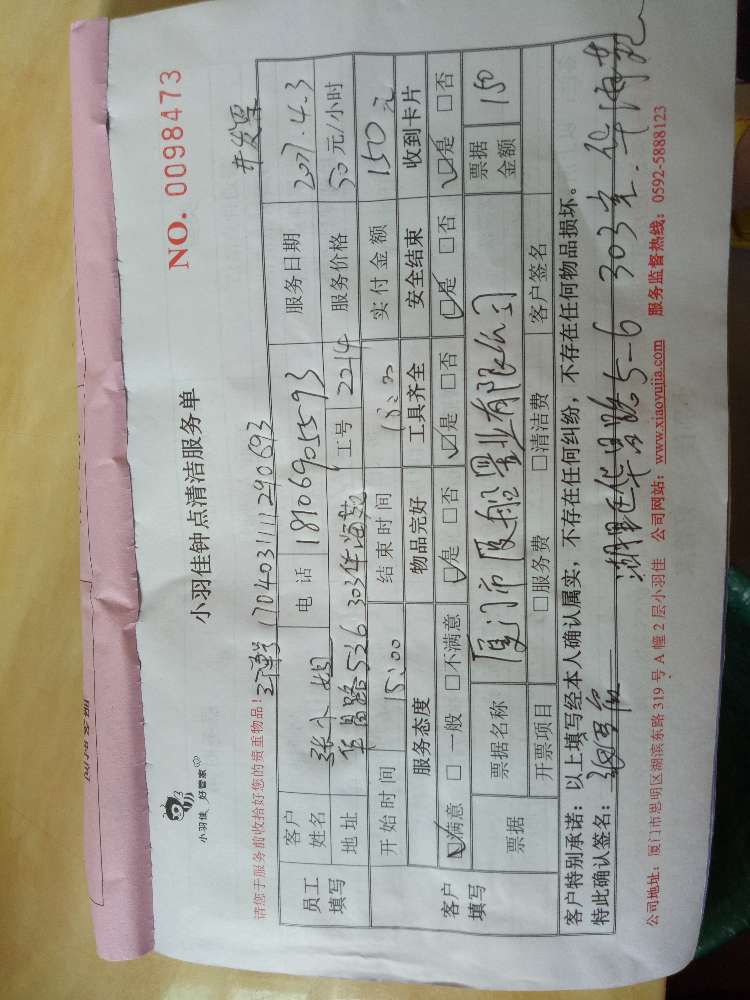 NO. 0098473
小羽佳 好管家
小羽佳钟点清洁服务单
开发票
请您于服务前收拾好您的贵重物品!
170403111290693
员工填写
客户姓名 张小姐 电话 18106905593 服务日期 2017.4.3
地址 华昌路5-6 303华海苑 工号 2214 服务价格 50元/小时
开始时间 15:00 结束时间 18:00 实付金额 150元
客户填写
服务态度 物品完好 工具齐全 安全结束 收到卡片
☑满意 □一般 □不满意 ☑是 □否 ☑是 □否 ☑是 □否 ☑是 □否
票据 票据名称 厦门市 置业有限公司 票据金额 150
开票项目 □服务费 □清洁费 客户签名
客户特别承诺:以上填写经本人确认属实,不存在任何纠纷,不存在任何物品损坏。
特此确认签名:
湖里区华昌路5-6 303室.华海苑
公司地址:厦门市思明区湖滨东路319号A幢2层小羽佳 公司网站:www.xiaoyujia.com 服务监督热线:0592-5888123